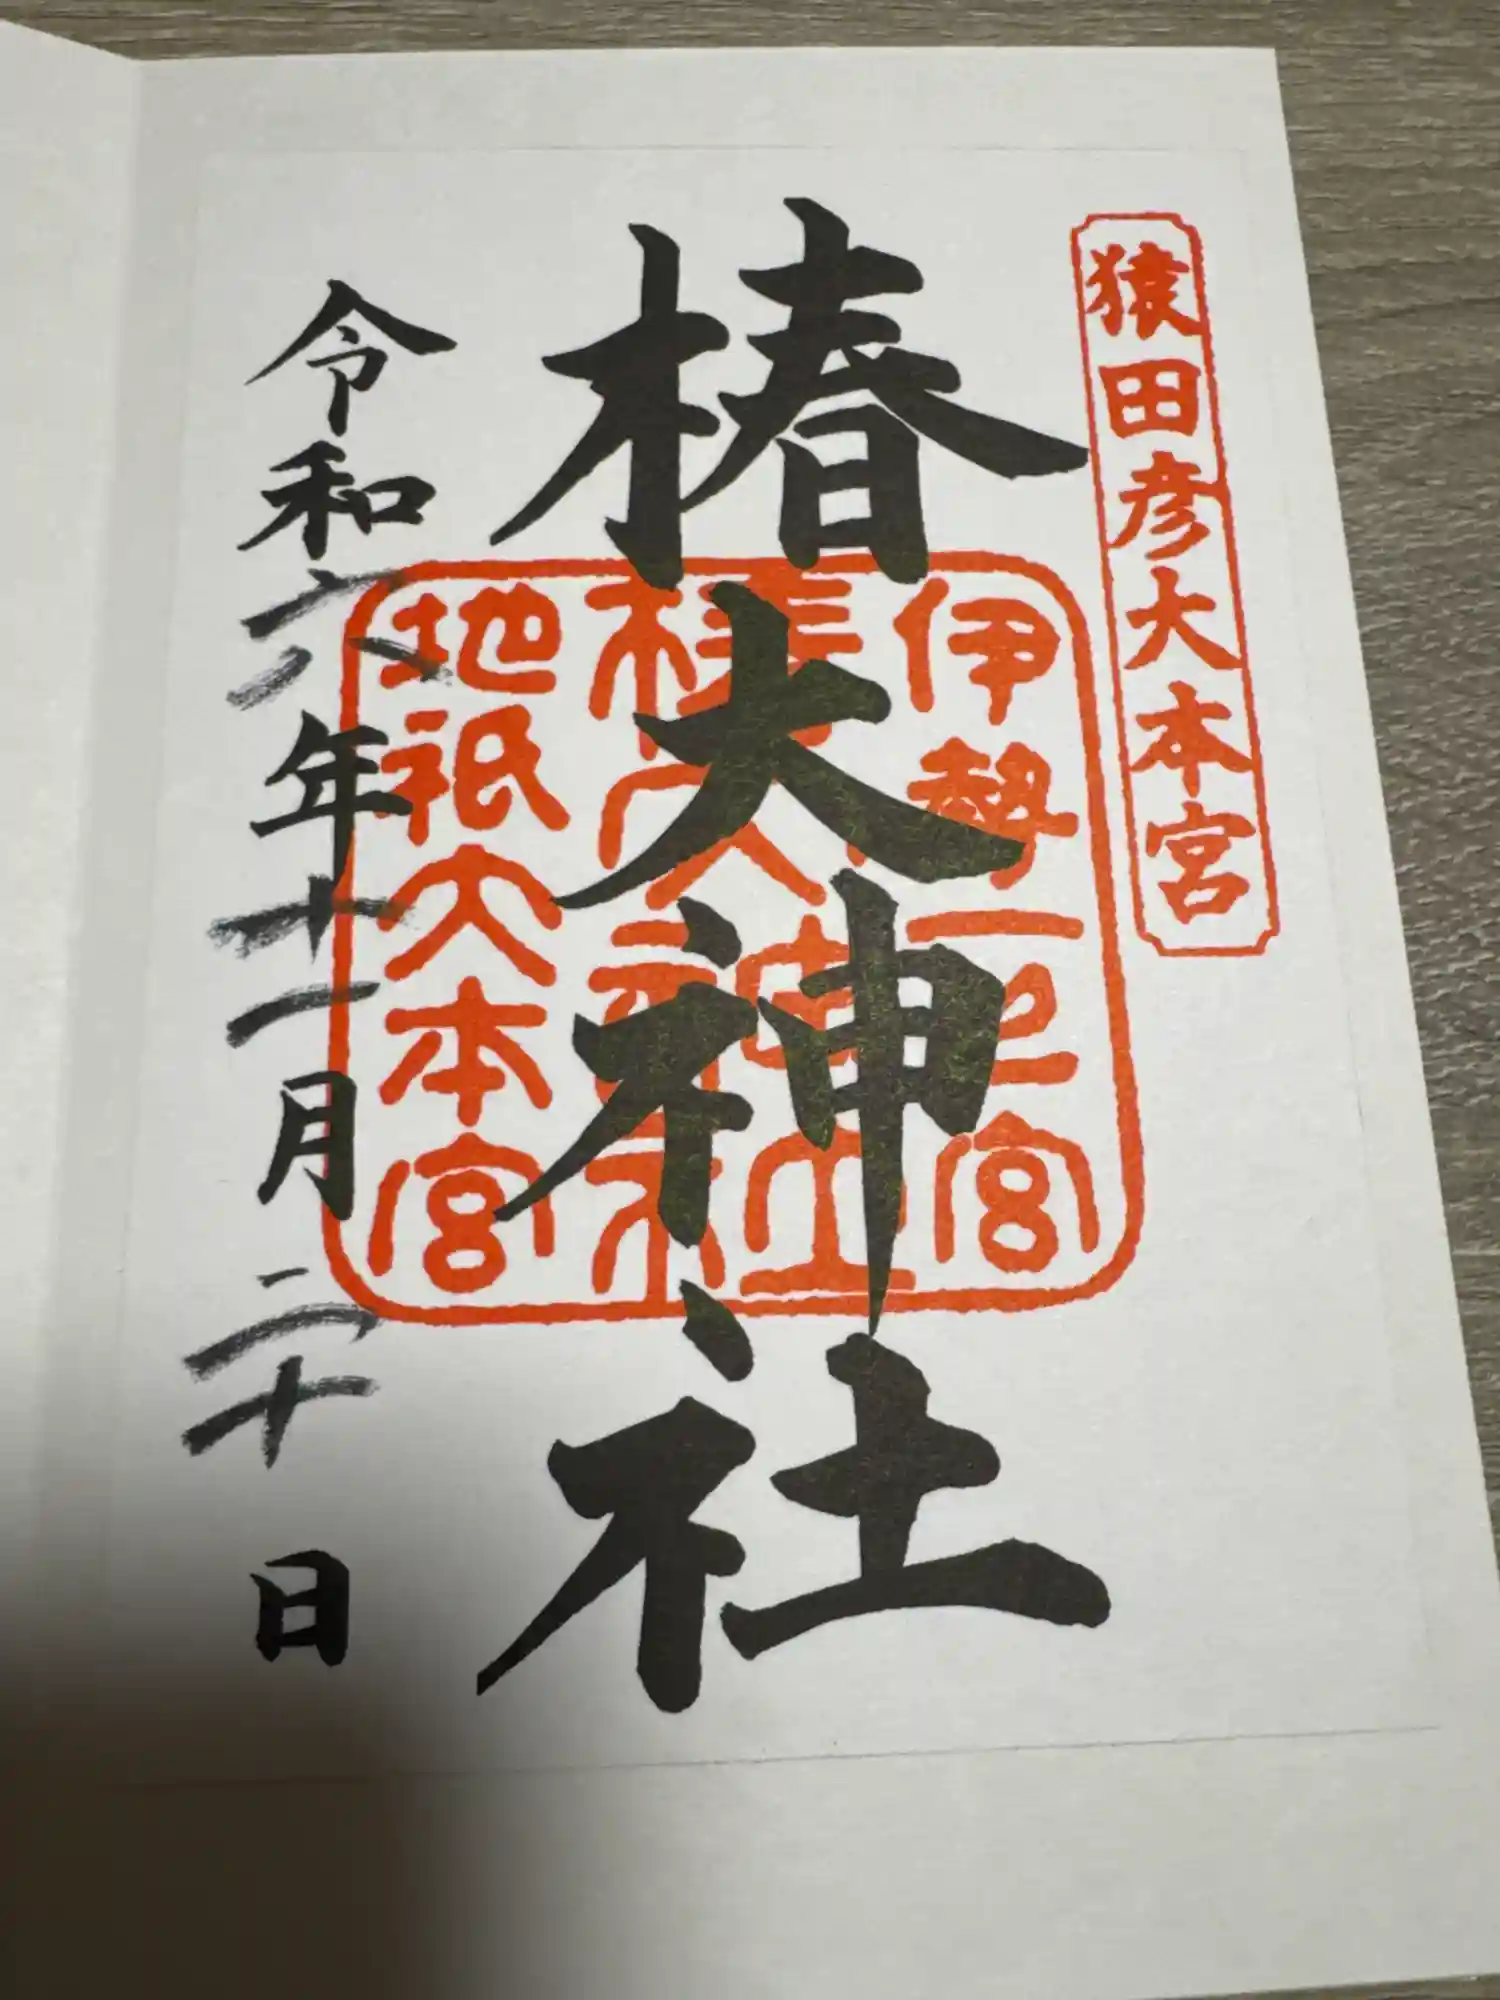 猿田彦大本宮
椿大神社
伊勢一之宮
椿大神社
地祇大本宮
令和六年十一月二十日